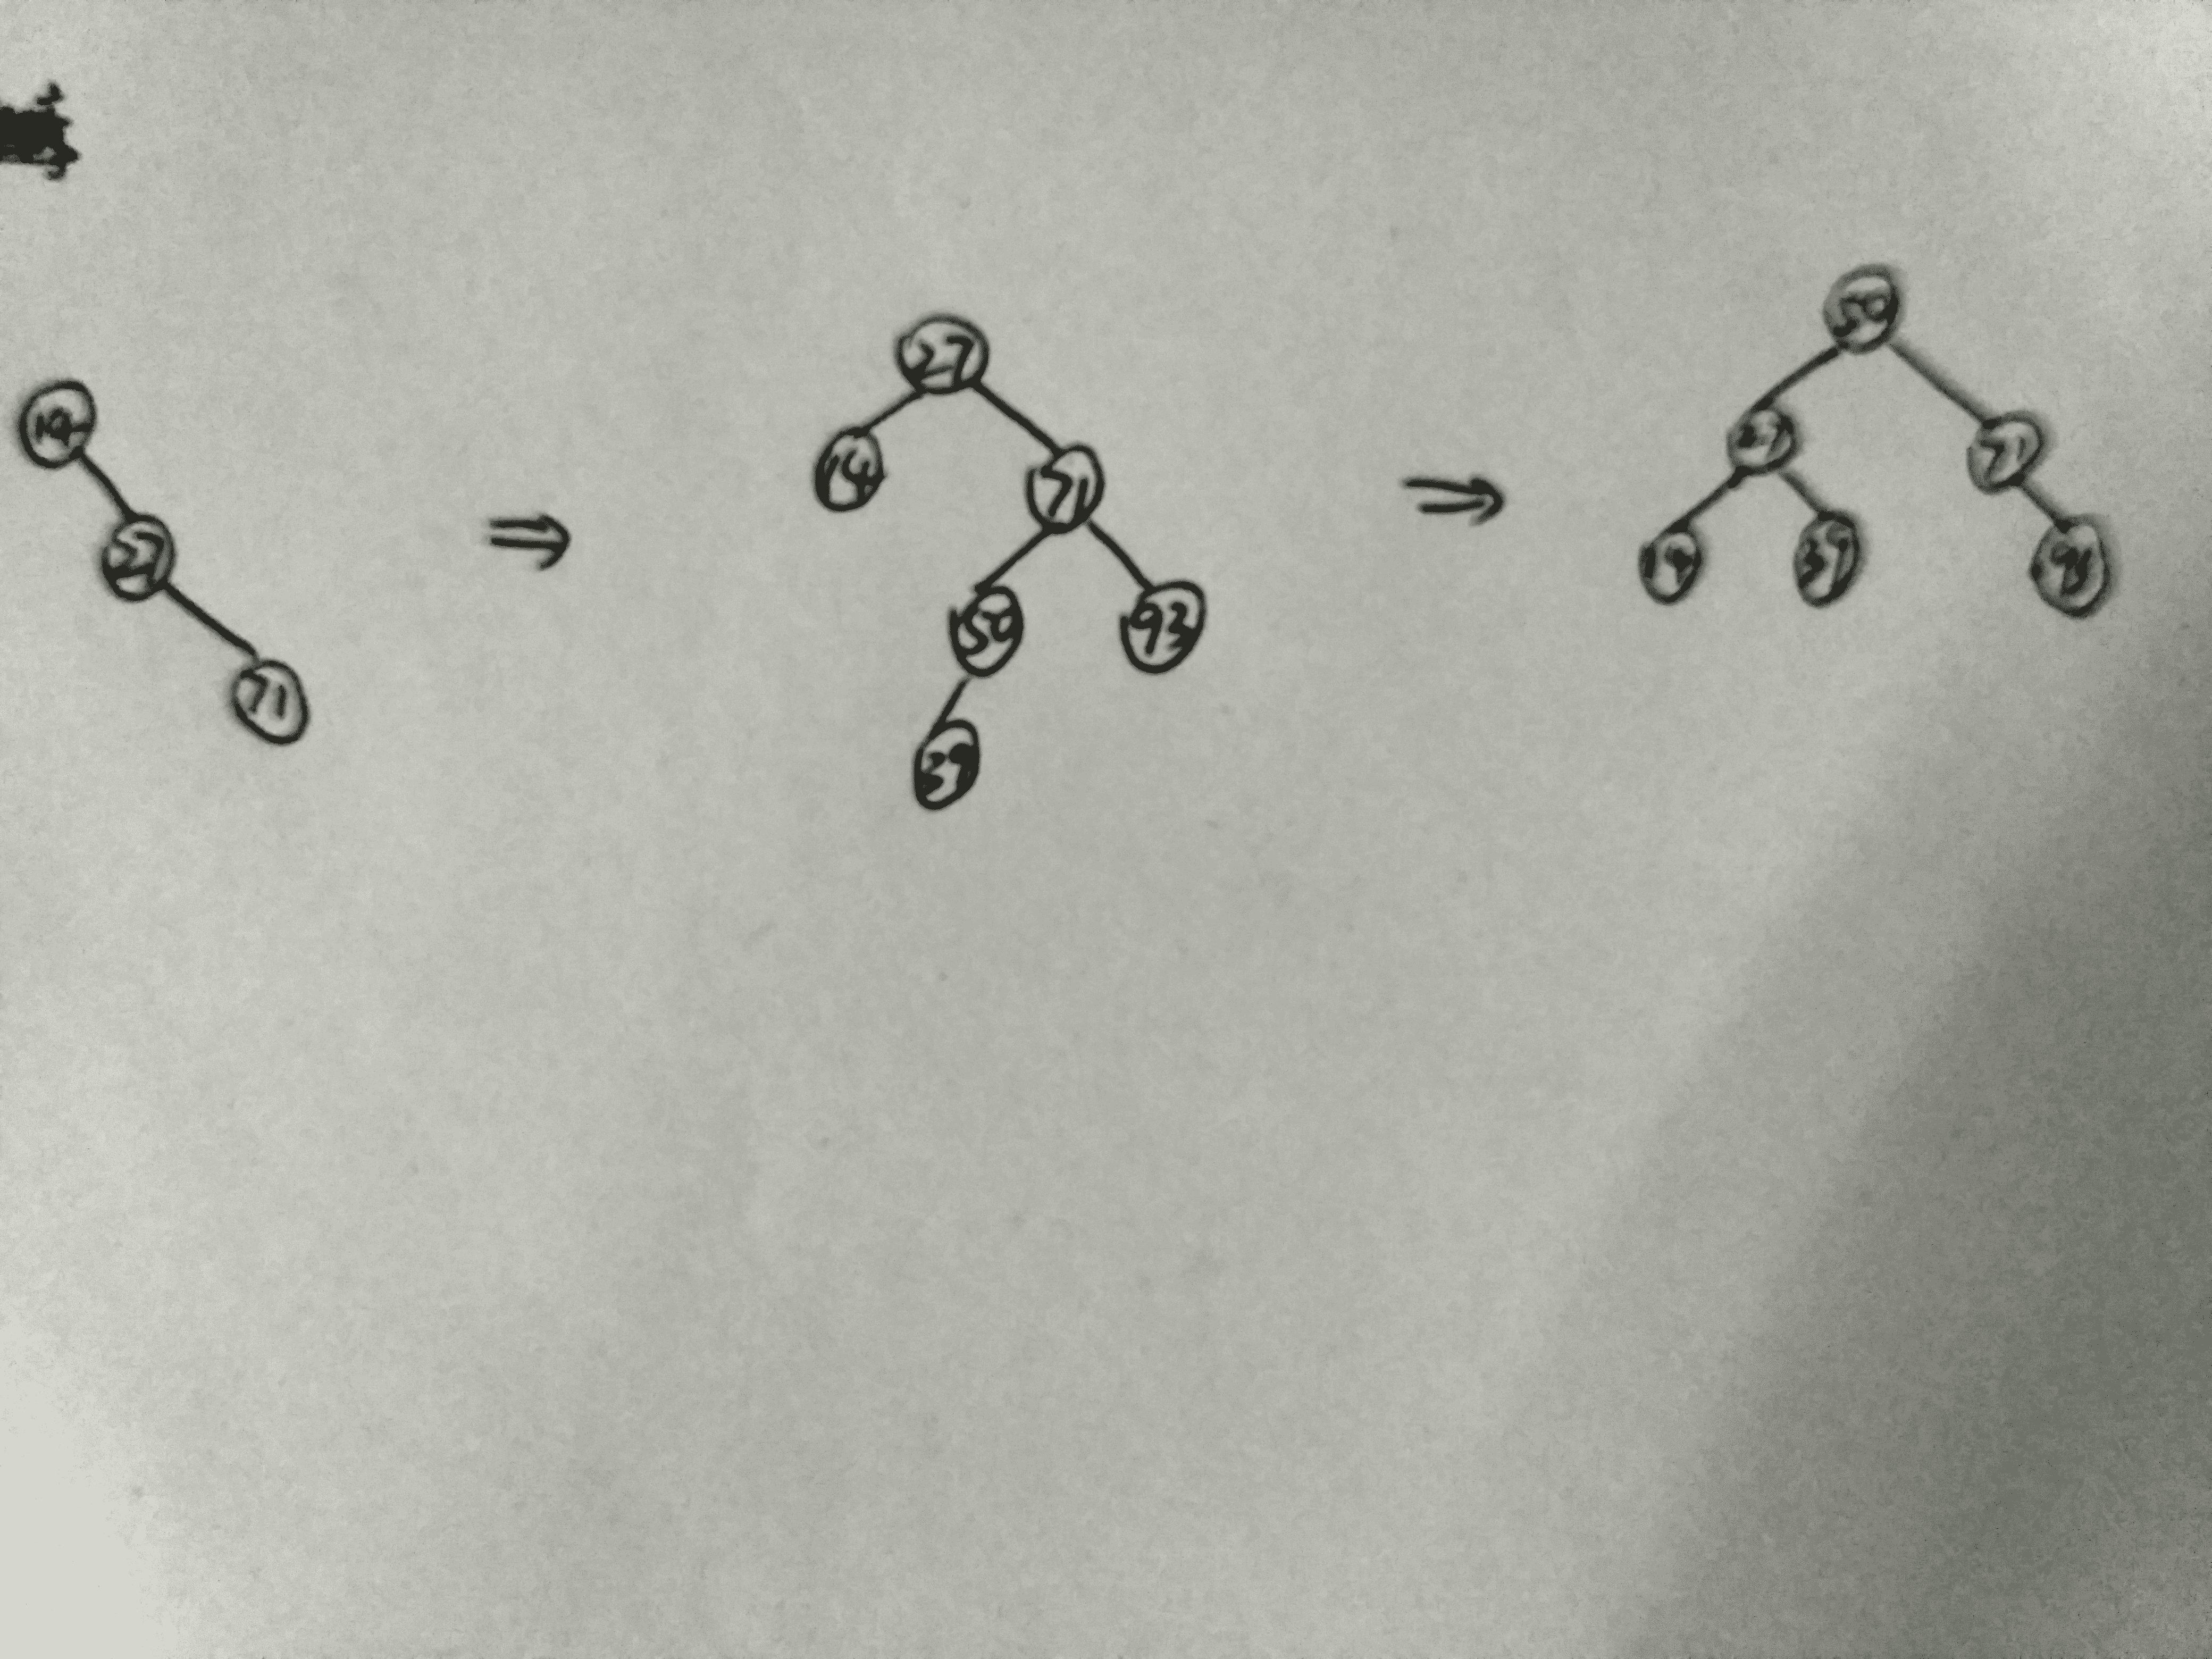 27
71
⇒
27
14
71
50
93
39
⇒
50
27
71
39